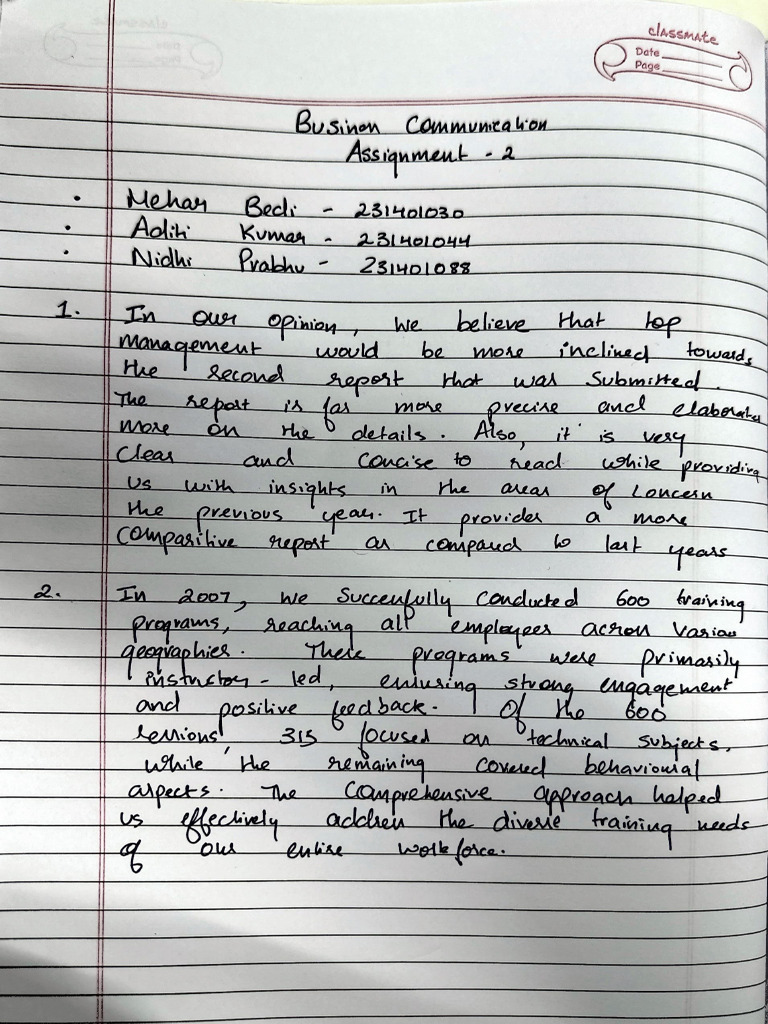 classmate
Date
Page
Business Communication
Assignment - 2
• Mehar Bedi - 231401030
• Aditi Kumar - 231401044
• Nidhi Prabhu - 231401088
1. In our opinion, we believe that top
management would be more inclined towards
the second report that was submitted.
The report is far more precise and elaborates
more on the details. Also, it is very
clear and concise to read while providing
us with insights in the areas of concern
the previous year. It provides a more
comparitive report as compared to last years
2. In 2007, we successfully conducted 600 training
programs, reaching all employees across various
geographies. These programs were primarily
instructor-led, ensuring strong engagement
and positive feedback. Of the 600
sessions, 315 focused on technical subjects,
while the remaining covered behavioural
aspects. The comprehensive approach helped
us effectively address the diverse training needs
of our entire workforce.